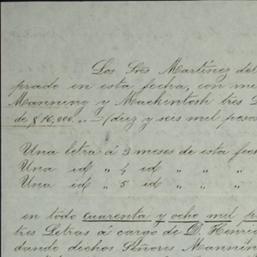 Los Sres Martinez del
prado en esta fecha, con me
Manning y Mackintosh tres L
de $16,000.,, —(diez y seis mil pesos
Una letra á 3 meses de esta fec
Una id ,, 4 id ,, ,, ,,
Una id ,, 5 id ,, ,, ,,
en todo cuarenta y ocho mil p
tres Letras á cargo de D. Henri
dando dechos Señores Mannin